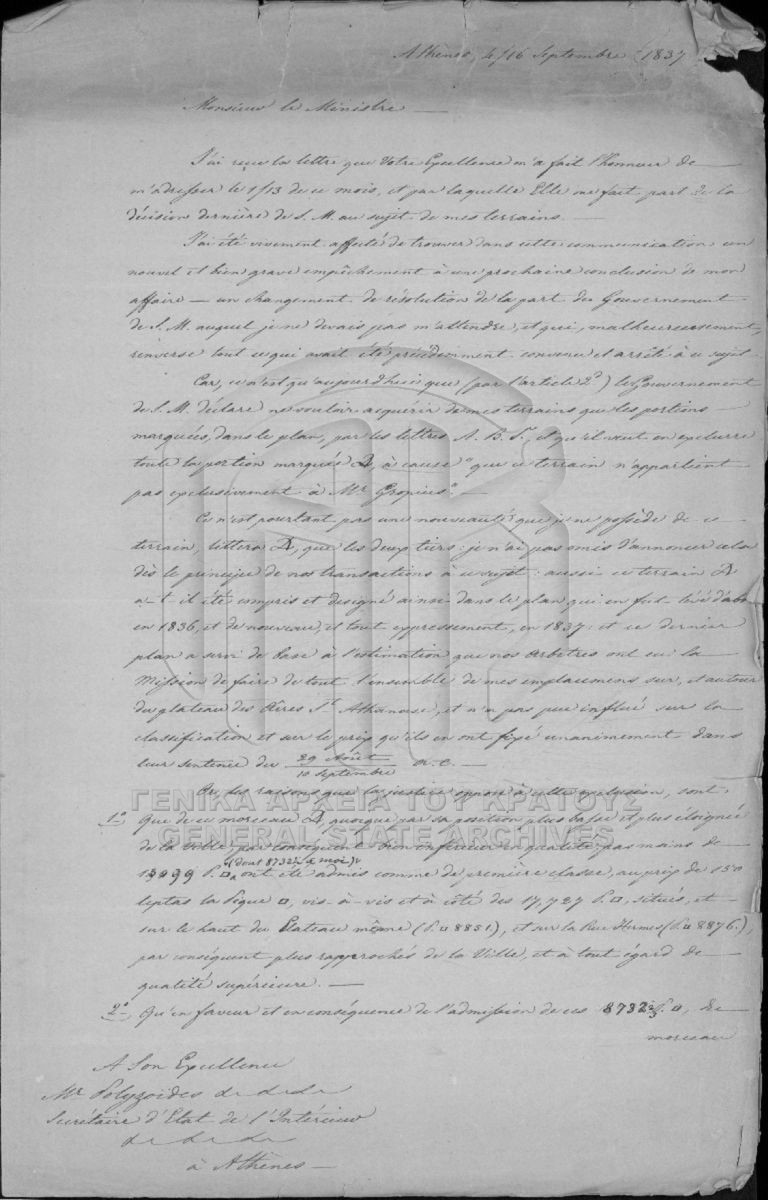 Athènes, le /16 Septembre 1837
Monsieur le Ministre
J'ai reçu la lettre que Votre Excellence m'a fait l'honneur de
m'adresser le 1/13 de ce mois, et par laquelle Elle me fait part de la
décision dernière de S. M. au sujet de mes terrains.
J'ai été vivement affecté de trouver dans cette communication un
nouvel et bien grave empêchement à une prochaine conclusion de mon
affaire — un changement de résolution de la part du Gouvernement
de S. M. auquel je ne devais pas m'attendre, et qui, malheureusement,
renverse tout ce qui avait été précédemment convenu et arrêté à ce sujet.
Car, ce n'est qu'aujourd'hui que (par l'article 2°) le Gouvernement
de S. M. déclare ne vouloir acquérir de mes terrains que les portions
marquées, dans le plan, par les lettres A. B. Γ, et qu'il veut en exclure
toute la portion marquée Δ, à cause "que ce terrain n'appartient
pas exclusivement à Mr Gropius". —
Ce n'est pourtant pas une nouveauté que je ne possède de ce
terrain, littera Δ, que les deux tiers: je n'ai pas omis d'annoncer cela
dès le principe de nos transactions à ce sujet: aussi ce terrain Δ
a-t-il été compris et designé ainsi dans le plan qui en fut levé d'abord
en 1836, et de nouveau, et tout expressement, en 1837: et ce dernier
plan a servi de base à l'estimation que nos Arbitres ont eu la
Mission de faire de tout l'ensemble de mes emplacemens sur, et autour
du plateau des Pères St Athanase, et n'a pas peu influé sur la
classification et sur le prix qu'ils en ont fixé unanimement dans
leur Sentence du 29 Août / 10 Septembre a. c. —
Or, les raisons que la justice oppose à cette exclusion, sont:
1° Que de ce morceau Δ, quoique par sa position plus basse et plus éloignée
de la Ville, par conséquent bien inférieur en qualité, pas moins de
(dont 8732⅔ à moi)
13099 P. □ ont été admis comme de première classe, au prix de 150
leptas la Pique □, vis-à-vis et à côté des 17,727 P. □, situés, et
sur le haut du Plateau même (P. □ 8851), et sur la Rue Hermes (P. □ 8876.),
par conséquent plus rapprochés de la Ville, et à tout égard de
qualité supérieure. —
2° Qu'en faveur et en conséquence de l'admission de ces 8732⅔ P. □, du
morceau
A Son Excellence
Mr Polyzoïdes
Secrétaire d'Etat de l'Intérieur
à Athènes —
ΓΕΝΙΚΑ ΑΡΧΕΙΑ ΤΟΥ ΚΡΑΤΟΥΣ
GENERAL STATE ARCHIVES